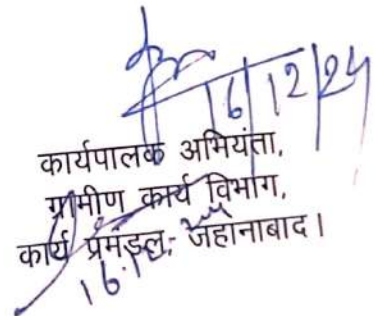 16/12/24
कार्यपालक अभियंता,
ग्रामीण कार्य विभाग,
कार्य प्रमंडल, जहानाबाद।